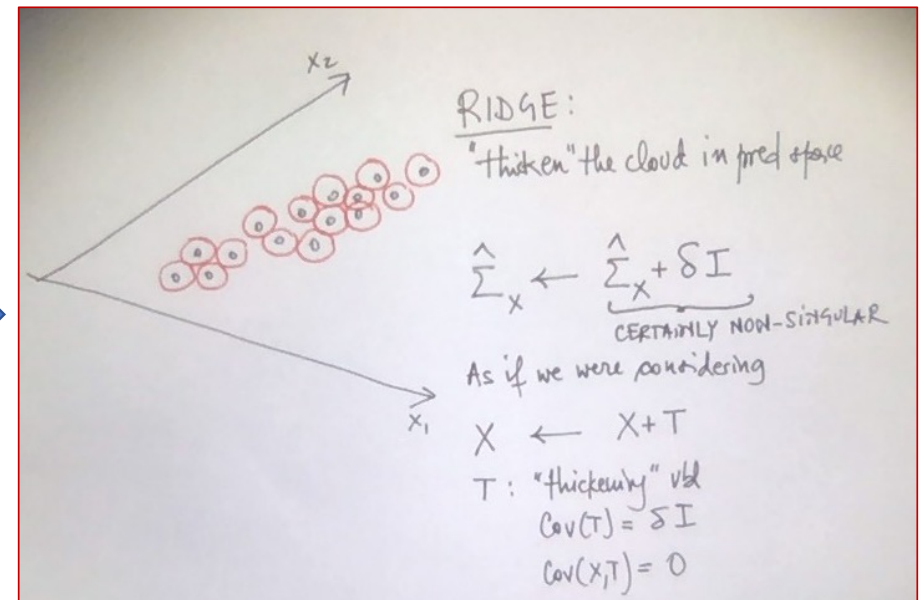 X2
RIDGE:
"thicken" the cloud in pred space
Σ̂X ← Σ̂X + δI
CERTAINLY NON-SINGULAR
As if we were considering
X1
X ← X+T
T: "thickening" vbl
Cov(T) = δI
Cov(X,T) = 0